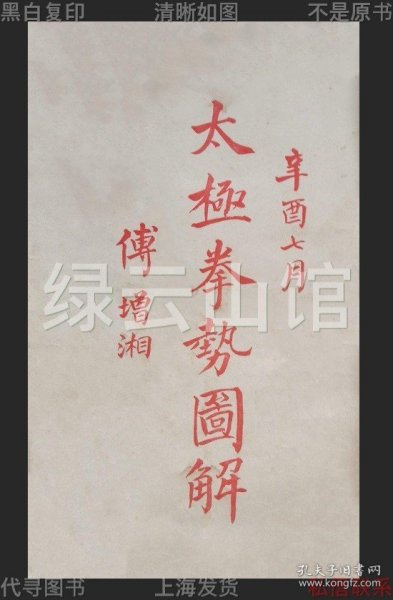 黑白复印 清晰如图 不是原书
辛酉七月
太極拳勢圖解
傅增湘
绿云山馆
孔夫子旧书网
www.kongfz.com
代寻图书 上海发货 私信联系